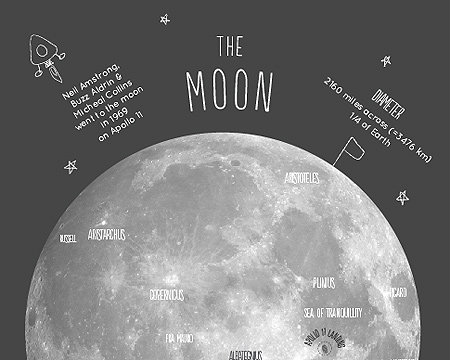 THE
MOON
Neil Amstrong,
Buzz Aldrin &
Micheal Collins
went to the moon
in 1969
on Apollo 11
DIAMETER
2160 miles across (=3476 km)
1/4 of Earth
ARISTOTELES
RUSSELL
ARISTARCHUS
COPERNICUS
PLINIUS
PICARD
SEA OF TRANQUILLITY
FRA MAURO
APOLLO 17 LANDING
ALBATEGNIUS